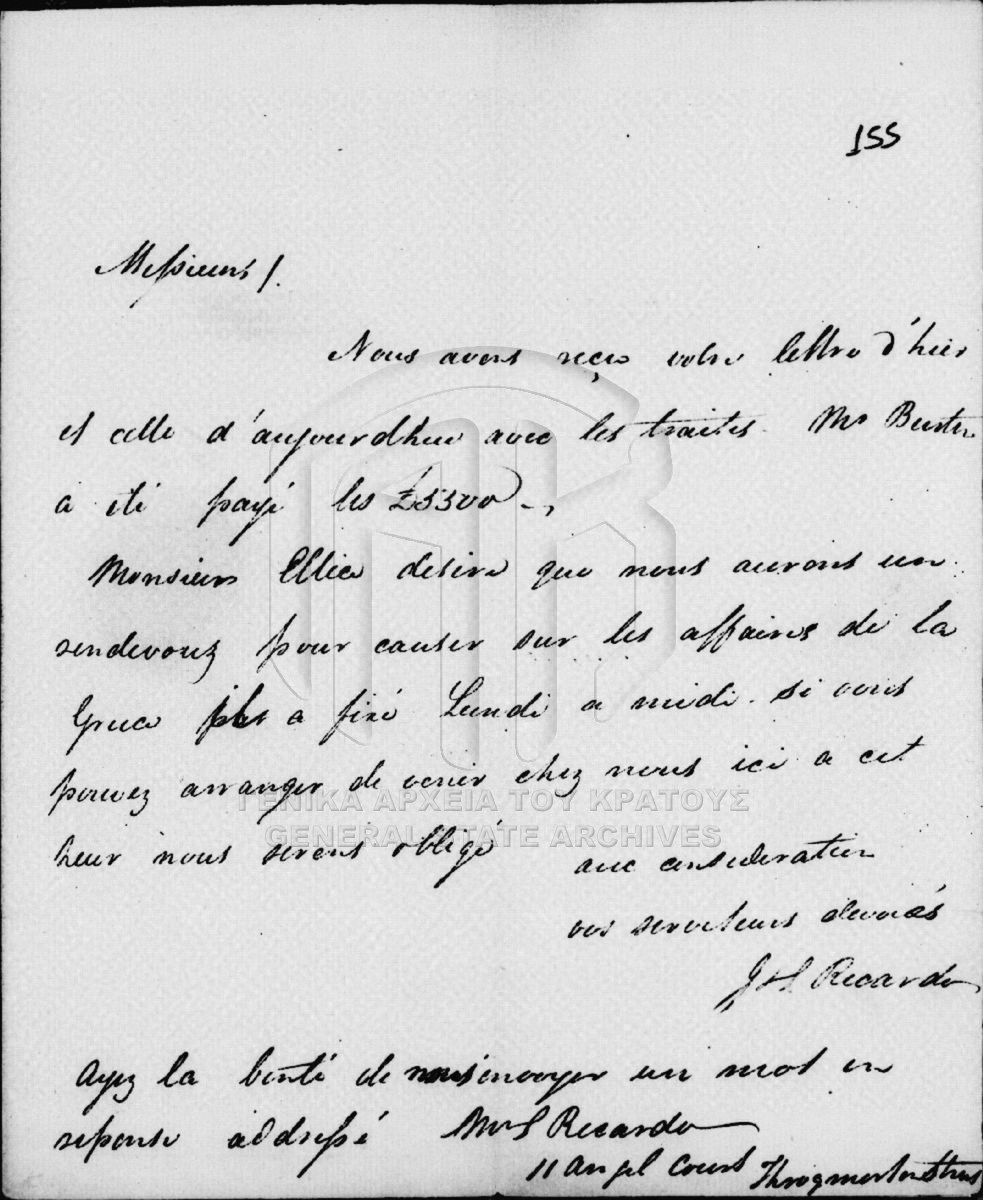 155
Messieurs!
Nous avons reçu votre lettre d'hier
et celle d'aujourdhui avec les traites. Mr
a été payé les £5500 -,
Monsieur Ellice desire que nous aurons un
rendevouz pour causer sur les affaires de la
Grece a fixé Lundi a midi. si vous
pouvez arranger de venir chez nous ici a cet
heur nous serons obligé
ΓΕΝΙΚΑ ΑΡΧΕΙΑ ΤΟΥ ΚΡΑΤΟΥΣ
GENERAL STATE ARCHIVES
avec consideration
vos serviteurs devoués
J & S Ricardo
Ayez la bonté de nous envoyer un mot en
reponse addressé Mr S Ricardo
11 Angel Court Throgmorton Street